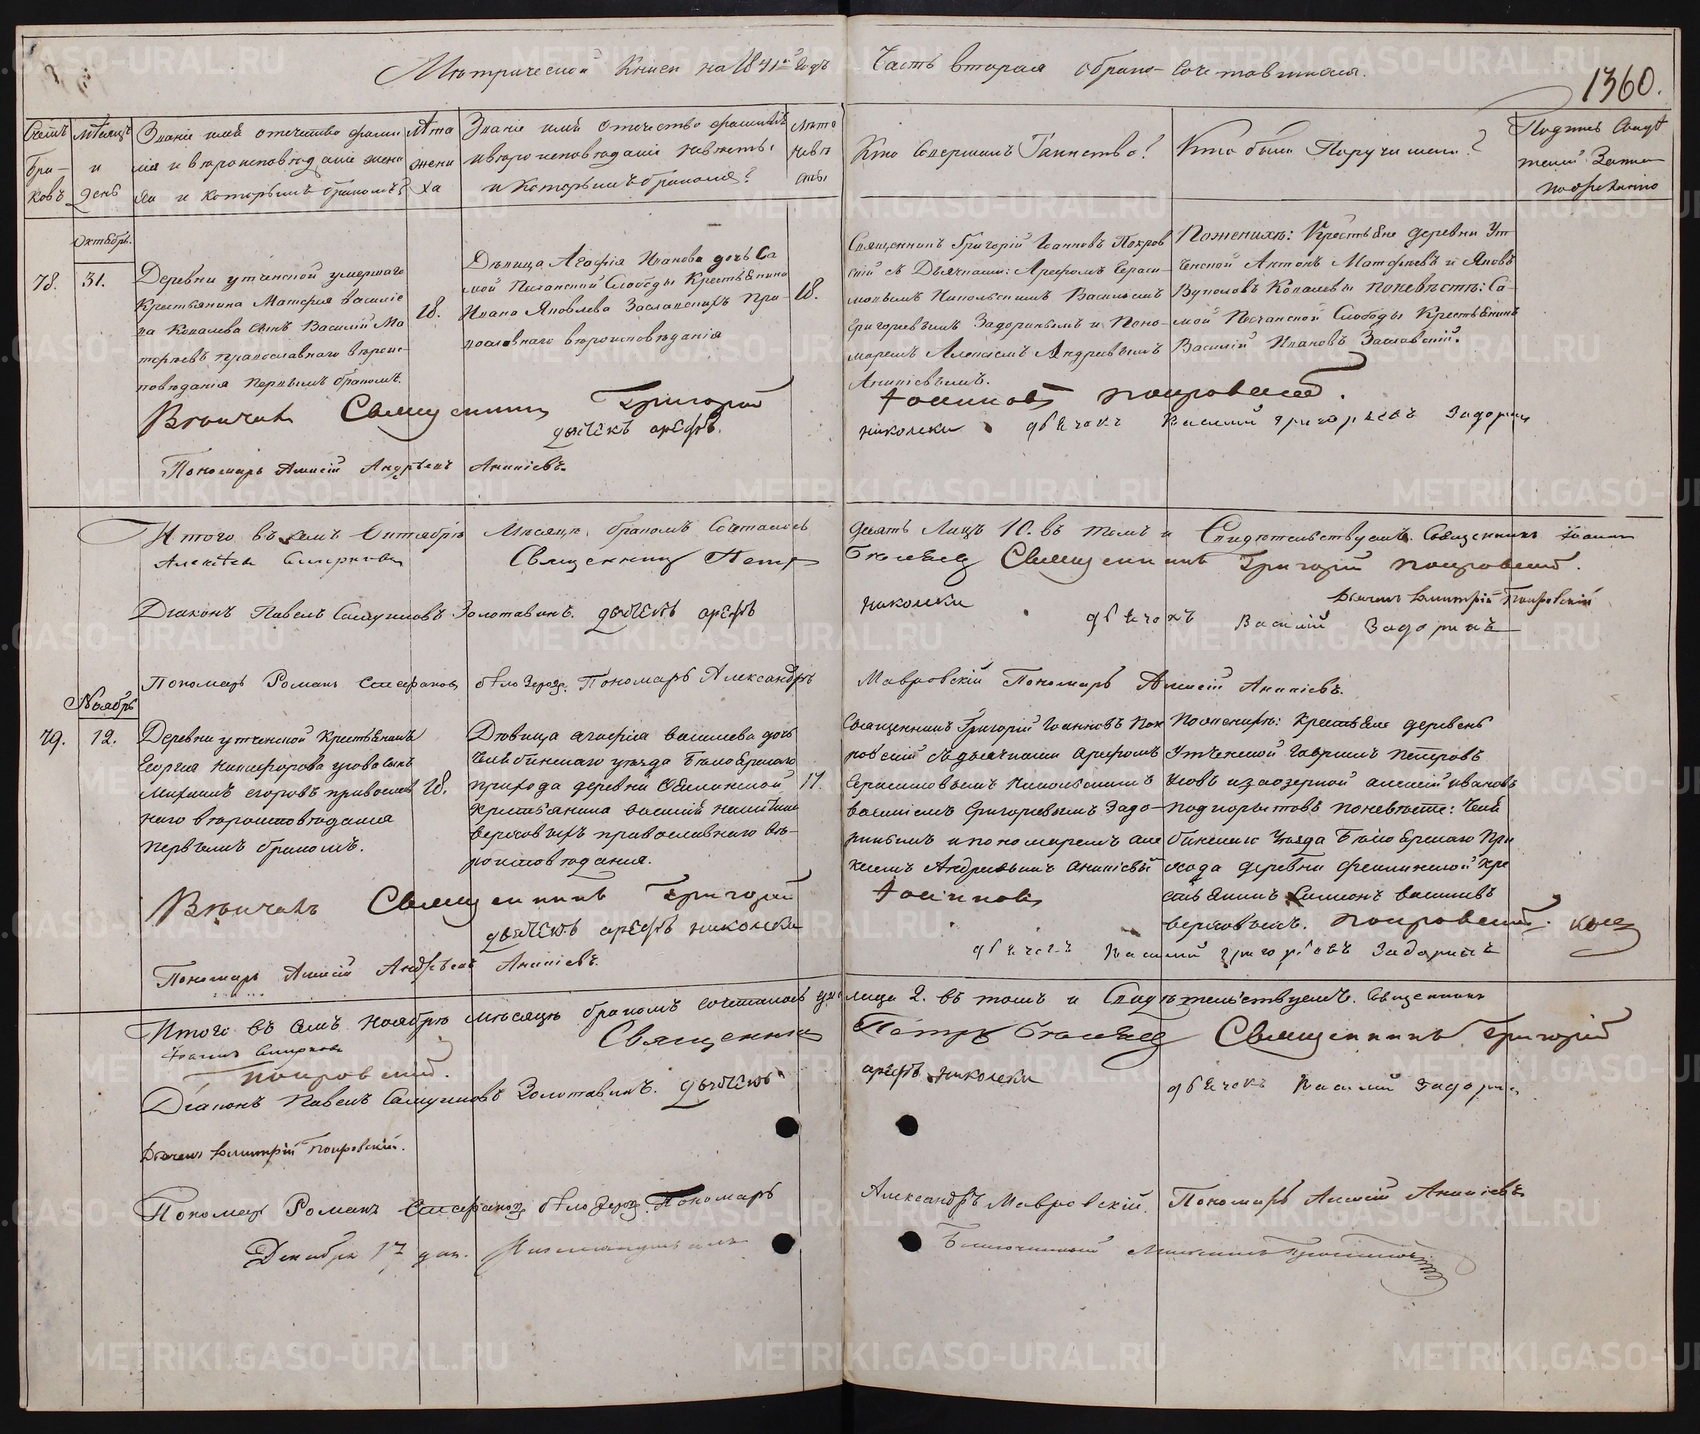 Метрической Книги на 1841й Годъ
Часть вторая о брако-сочетавшихся.
1360.
Счетъ браковъ
Мѣсяцъ и день
Званіе имя отечество фамилія и вѣроисповѣданіе жениха и которымъ бракомъ?
Лѣта жениха
Званіе имя отечество фамилія и вѣроисповѣданіе невѣсты, и которымъ бракомъ?
Лѣта невѣсты
Кто совершалъ Таинство?
Кто были Поручители?
Октябрь.
78.
31.
Деревни Утчанской умершаго
Крестьянина Матфея Василье
ва Ковалева сынъ Василій Ма
тфѣевъ православнаго вѣроис-
повѣданія первымъ бракомъ.
18.
Дѣвица Агафія Иванова дочь Са
мой Песчанской Слободы Крестьянина
Ивана Яковлева Заславскихъ пра-
вославнаго вѣроисповѣданія
18.
Священникъ Григорій Іоанновъ Покров
скій съ Дьячками: Арефомъ Гераси-
мовымъ Никольскимъ Васильемъ
Григорьевымъ Задоринымъ и Поно-
маремъ Алексѣемъ Андреевымъ
Ананіевымъ.
По женихѣ: Крестьяне деревни Ут-
чанской Антонъ Матфѣевъ и Яковъ
Ковалевы по невѣстѣ: Са-
мой Песчанской Слободы Крестьянинъ
Василій Ивановъ Заславскій.
Вѣнчалъ Священникъ Григорій Іоанновъ Покровский.
дьячекъ арефъ никольски дьячокъ Василий григорьевъ Задорин
Пономарь Алексій Андреевъ Ананіевъ.
Итого въ семъ Октябрѣ Мѣсяцѣ бракомъ Сочеталось десять Лицъ 10. въ томъ и Свидѣтельствуемъ. Священникъ Іоаннъ
Алексѣевъ Смирновъ Священникъ Петръ Священникъ Григорій Покровский.
Дьячекъ Димитрій Покровскій
Діаконъ Павелъ Самуиловъ Золотавинъ. дьячекъ арефъ никольски дьячокъ Василій Задоринъ
Пономарь Романъ Стефановъ бѣлозеровъ. Пономарь Александръ Мавровскій Пономарь Алексій Ананіевъ.
Ноябрь
79.
12.
Деревни утчанской Крестьянинъ
Георгія Никифорова сынъ
Михаилъ егоровъ православ
наго вѣроисповѣданія
первымъ бракомъ.
18.
Дѣвица агафія васильева дочь
Челябинскаго уѣзда Бѣлоярскаго
прихода деревни
крестьянина василія никитина
православнаго вѣ-
роисповѣданія.
17.
Священникъ Григорій Іоанновъ Пок
ровскій съ дьячками арефомъ
Герасимовымъ Никольскимъ
васильемъ Григорьевымъ Задо-
ринымъ и пономаремъ але
ксѣемъ Андреевымъ Ананіевы
По женихѣ: крестьяне деревень
Утчанской Гаврилъ Петровъ
и заозерной алексій ивановъ
подкорытовъ по невѣстѣ: Челя
бинскаго Уѣзда Бѣлоярскаго При
хода деревни кре
стьянинъ Симеонъ васильевъ
Вѣнчалъ Священникъ Григорій Іоанновъ Покровский.
дьячекъ арефъ никольски дьячекъ Василий григорьевъ Задоринъ
Пономарь Алексій Андреевъ Ананіевъ.
Итого въ семъ ноябрѣ мѣсяцѣ бракомъ сочеталось два лица 2. въ томъ и Свидѣтельствуемъ. Священникъ
Іоаннъ Смирновъ Священникъ Петръ Священникъ Григорій
Покровский.
Діаконъ Павелъ Самуиловъ Золотавинъ. дьячекъ арефъ никольски дьячекъ Василий Задорин
Дьячекъ Димитрій Покровскій.
Пономарь Романъ Стефановъ бѣлозеровъ. Пономарь Александръ Мавровскій. Пономарь Алексій Ананіевъ
Декабря 17 дня. Благочинный
METRIKI.GASO-URAL.RU